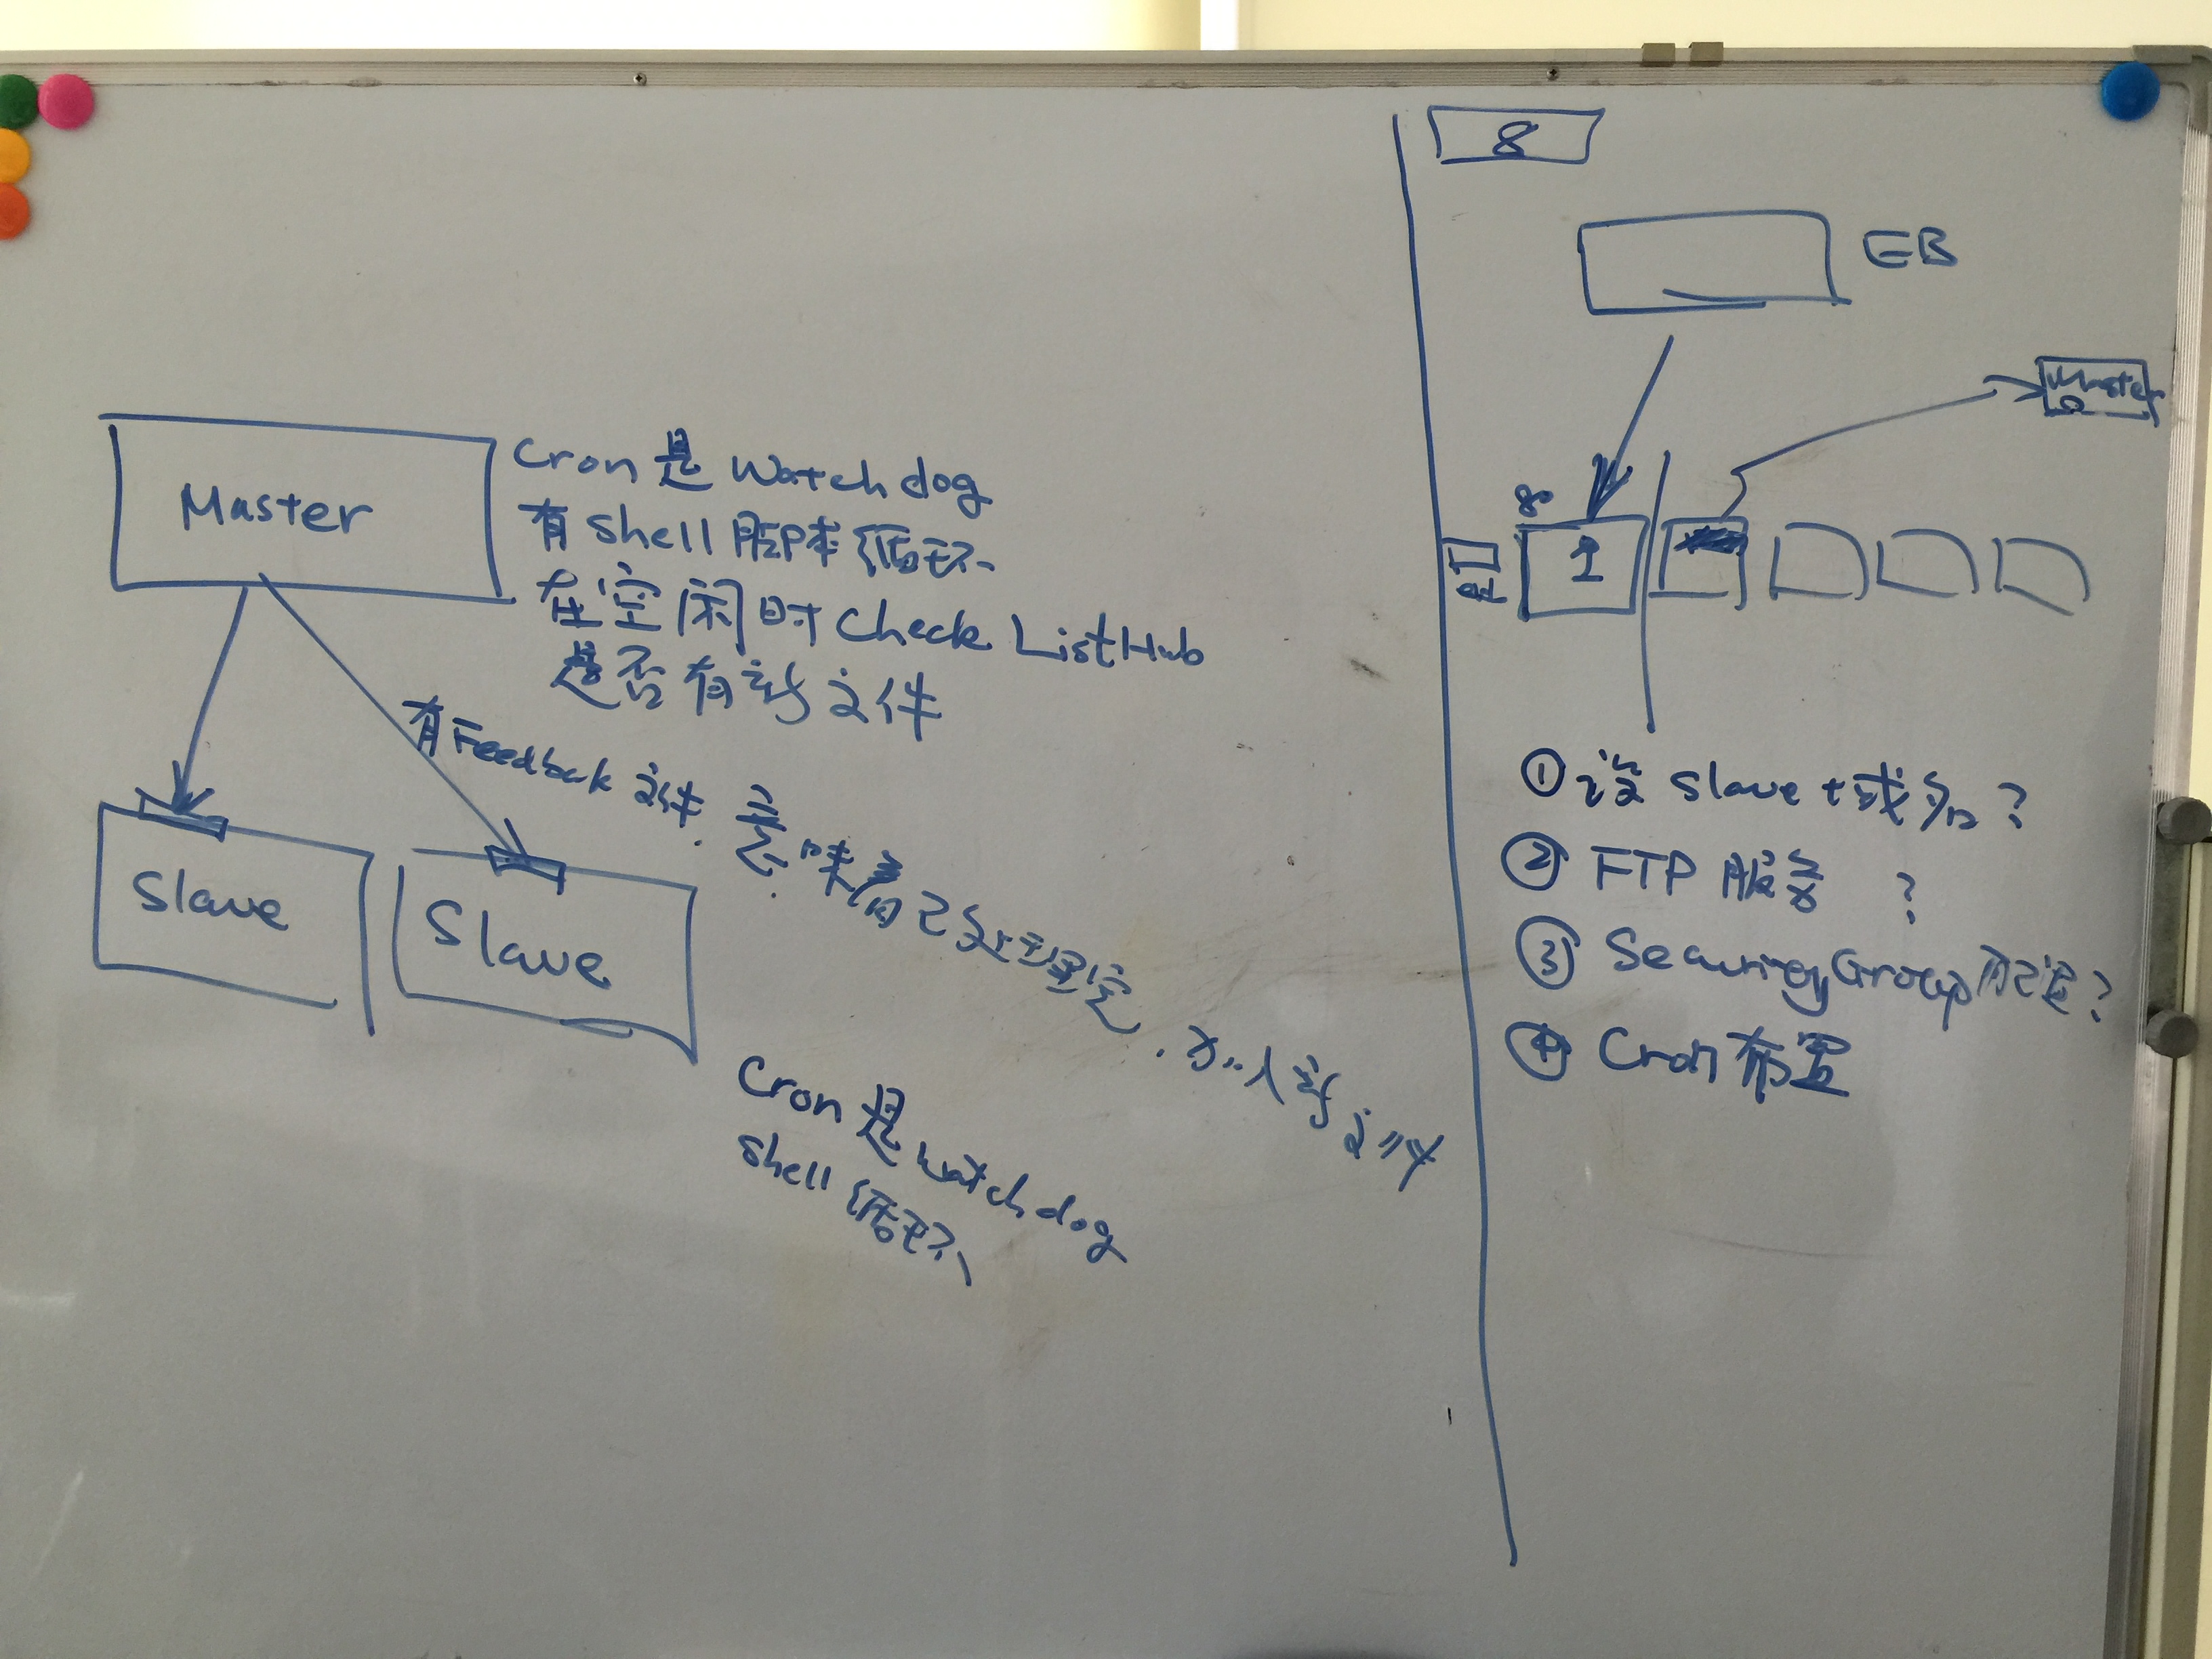 Master
Cron 是 Watch dog
有 shell 脚本 循环
在空闲时 Check ListHub
是否有新文件
有 Feedback 文件. 意味着已处理完. 放入新文件
Slave
Slave
Cron 是 watch dog
shell 循环
8
EB
Master
80
1
① 没 Slave
② FTP 服务 ?
③ Security Group 配置?
④ Cron 布置